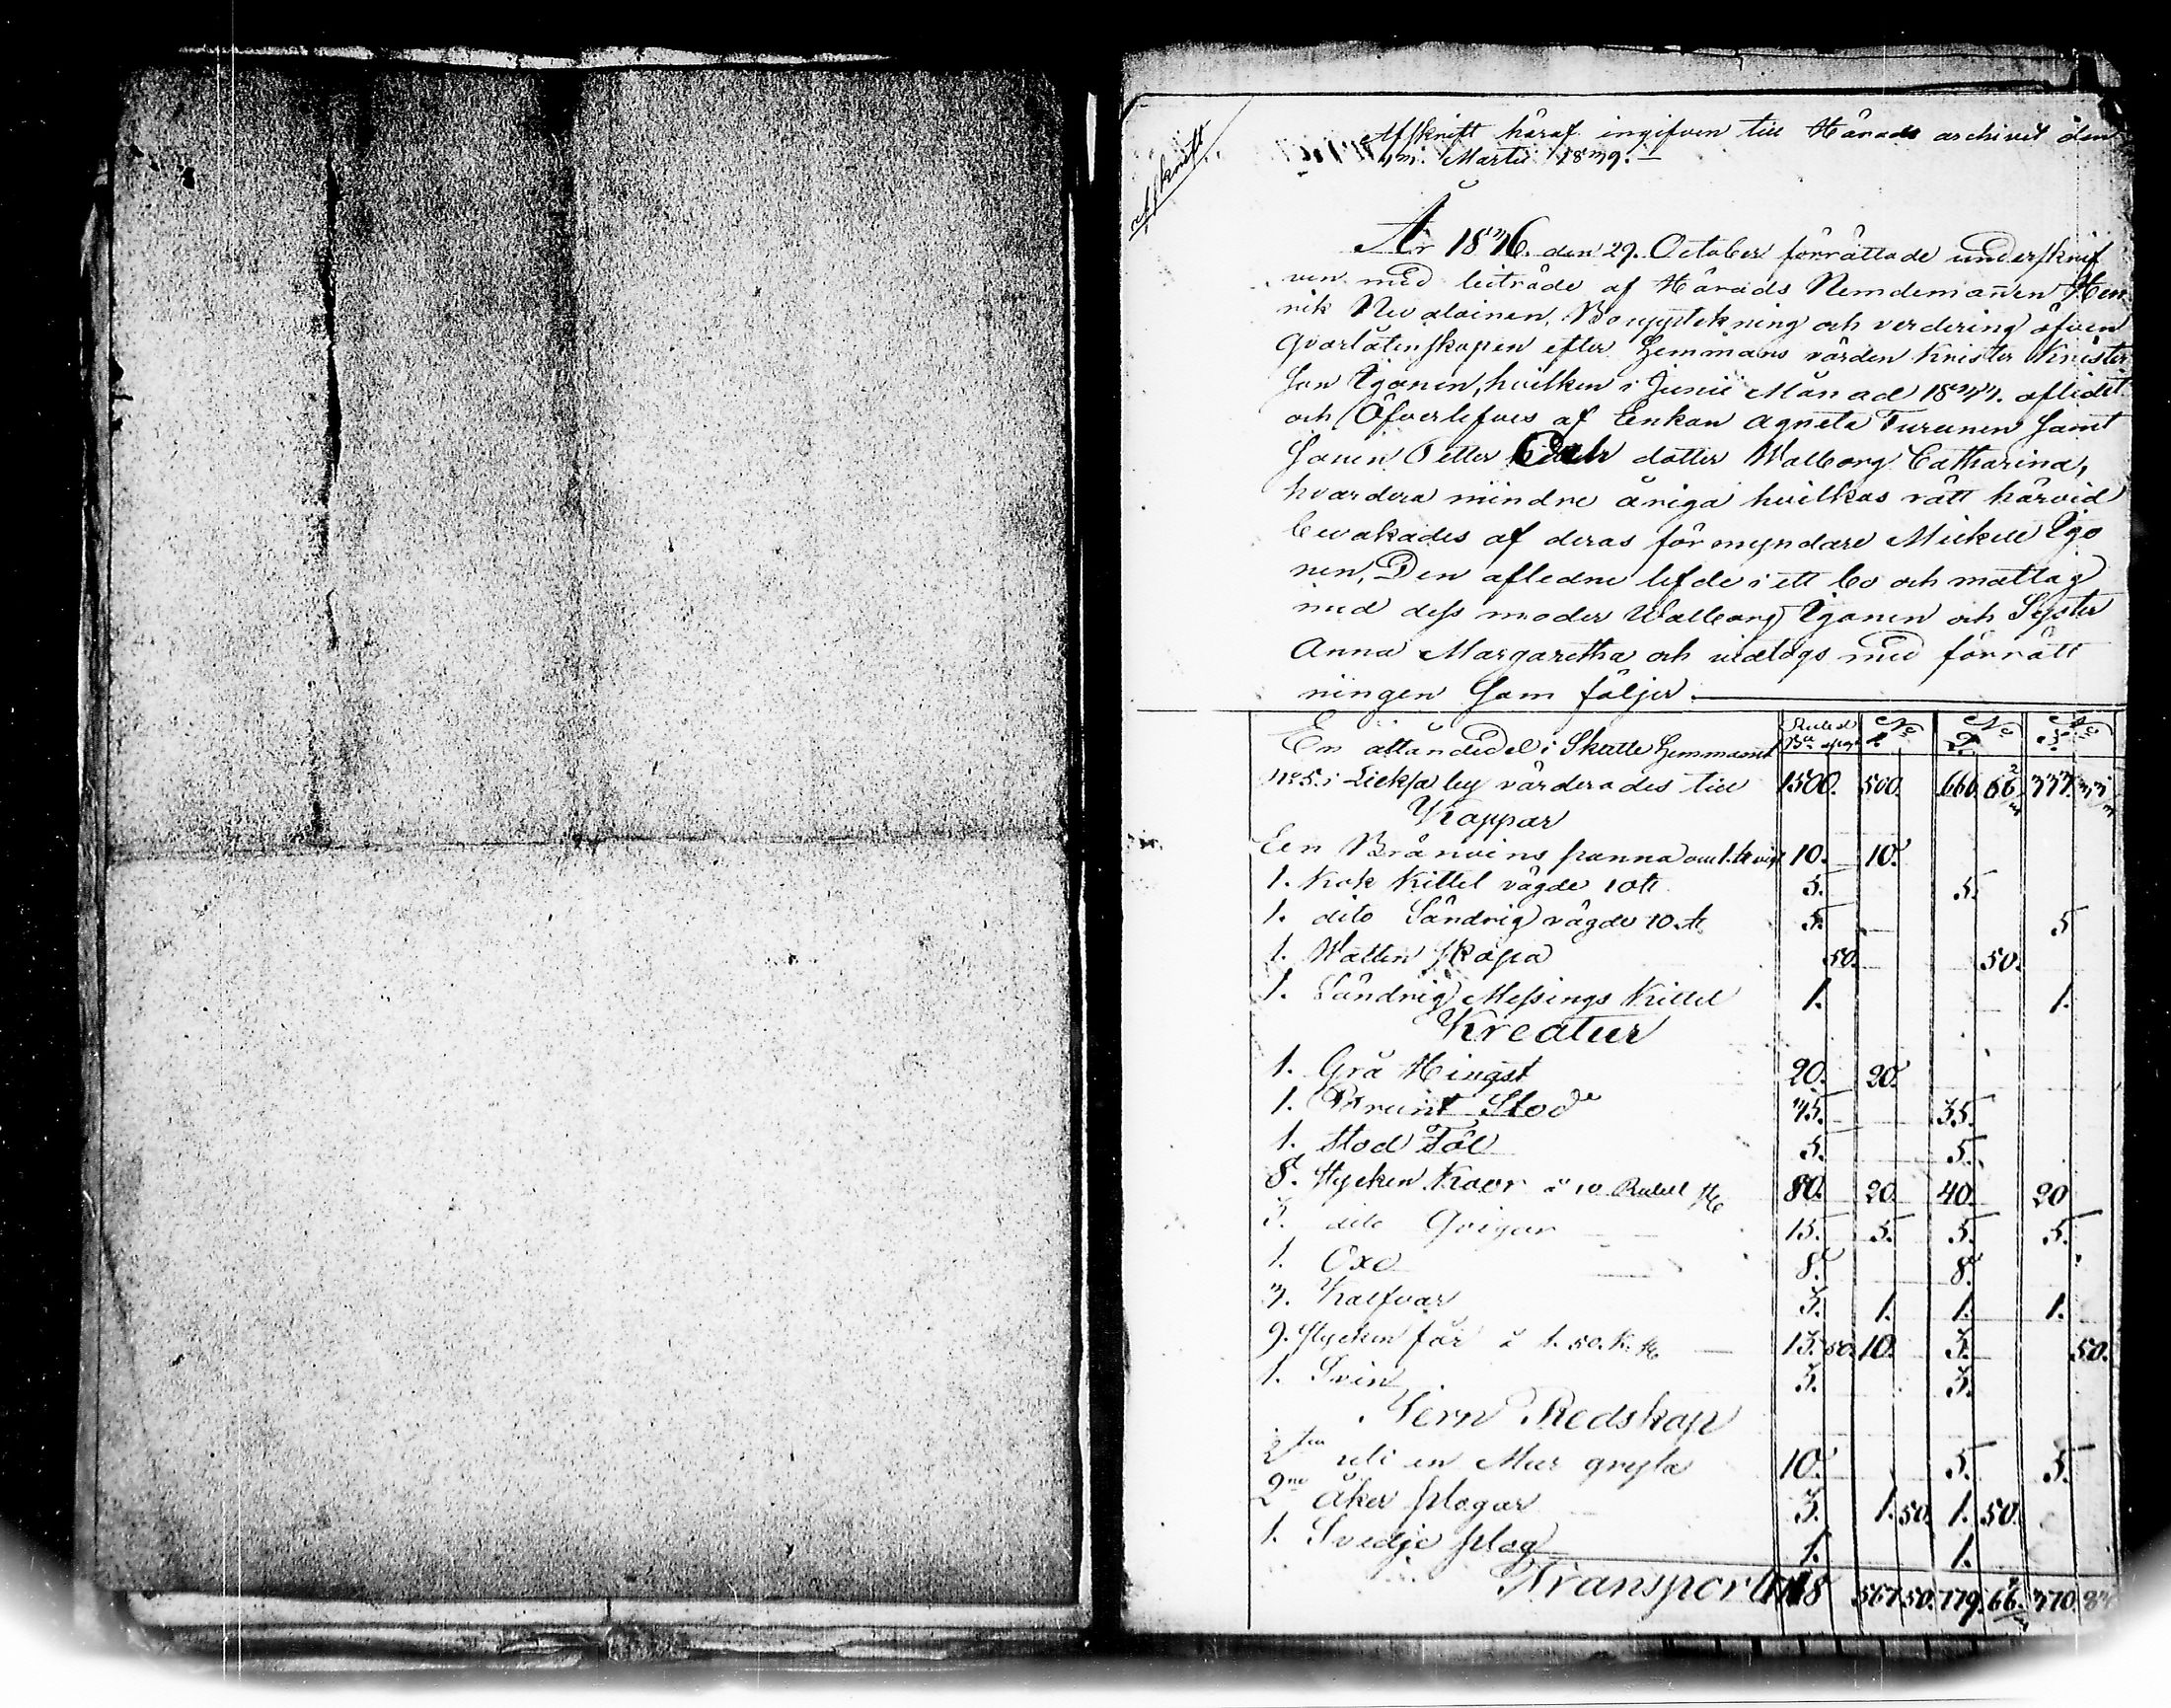 Afskrift
Afskrift häraf ingifven till Härads archivet den
Martii 1839.
År 1836. den 29. October förrättade underskrif
ven med biträde af Härads Nemdemannen Hen
rik Nevalainen, Bouppteckning och verdering öfver
qvarlåtenskapen efter Hemmans värden Krister Krister
son Igonen, hvilken i Junii Månad 1834. aflidit
och Öfverlefves af Enkan Agneta Turunen samt
Sonen Petter Och dotter Walborg Catharina,
hvardera minder åriga hvilkas rätt härvid
bevakades af deras förmyndare Mickell Igo
nen, Den aflidne lefde i ett bo och matlag
med dess moder Walborg Igonen och Syster
Anna Margaretha och vidtogs med förrätt
ningen som följer.
En åttondedel i Skatte Hemmanet Rubel
N:o 5. i Lieksa by värderades till 1500. 500. 666 66 2/3 333. 33 1/3
Koppar
Een Bränvins panna 10. 10.
1. Kok Kittel vägde 10 ℔ 5. 5.
1. dito Söndrig vägde 10. ℔ 5. 5
1. Watten skopa 50. 50.
1. Söndrig Messings Kittel 1. 1.
Kreatur
1. Grå Hingst 20. 20.
1. Brunt Stod 35. 35.
1. stod Föl 5. 5.
8. stycken Koor à 10 Rubel st 80. 20. 40. 20
3. dito Qvigor 15. 5. 5. 5.
1. Oxe 8. 8.
3. Kalfvar 3. 1. 1. 1.
9. stycken får à 1. 50. K. st 13. 50. 10. 3. 50.
1. Svin 3. 3.
Jern Redskap
uti en Mur gryta 10. 5. 5.
2ne Åker plogar 3. 1. 50. 1. 50.
1. Svedje plog 1. 1.
Transport 1718 567 50. 779. 66 2/3 370. 83